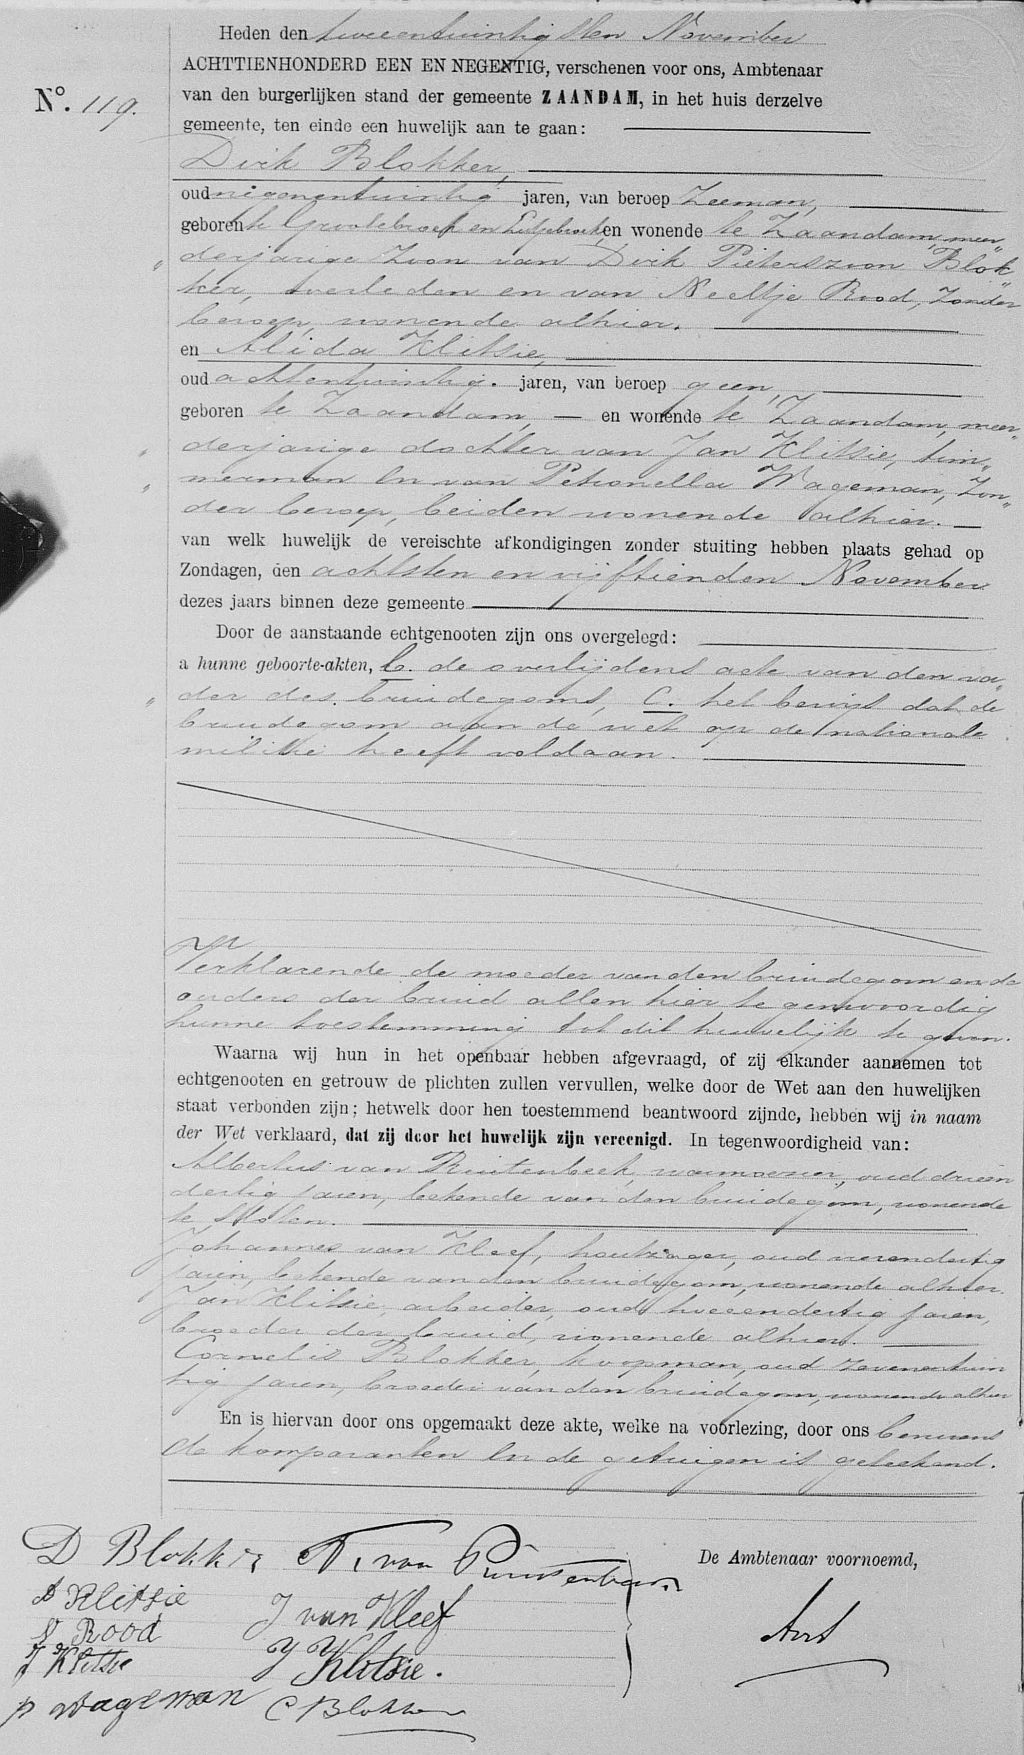 Heden den tweeentwintigsten November
ACHTTIENHONDERD EEN EN NEGENTIG, verschenen voor ons, Ambtenaar
van den burgerlijken stand der gemeente ZAANDAM, in het huis derzelve
No. 119.
gemeente, ten einde een huwelijk aan te gaan:
Dirk Blokker,
oud negenentwintig jaren, van beroep Zeeman,
geboren te Grootebroek en Lutjebroek, en wonende te Zaandam, meer„
„derjarige Zoon van Dirk Pieterszoon Blok„
ker, overleden en van Neeltje Rood, Zonder
beroep, wonende alhier.
en Alida Klitsie,
oud achtentwintig. jaren, van beroep geen,
geboren te Zaandam, — en wonende te Zaandam, meer„
„derjarige dochter van Jan Klitsie, tim„
„merman en van Petronella Wageman, Zon„
der beroep, beiden wonende alhier. —
van welk huwelijk de vereischte afkondigingen zonder stuiting hebben plaats gehad op
Zondagen, den achtsten en vijftienden November
dezes jaars binnen deze gemeente
Door de aanstaande echtgenooten zijn ons overgelegd:
a hunne geboorte-akten, b. de overlijdens acte van den va„
„der des bruidegoms, C. het bewijs dat de
bruidegom aan de wet op de nationale
militie heeft voldaan.
Verklarende de moeder van den bruidegom en de
ouders der bruid allen hier tegenwoordig
hunne toestemming tot dit huwelijk te geven.
Waarna wij hun in het openbaar hebben afgevraagd, of zij elkander aannemen tot
echtgenooten en getrouw de plichten zullen vervullen, welke door de Wet aan den huwelijken
staat verbonden zijn; hetwelk door hen toestemmend beantwoord zijnde, hebben wij in naam
der Wet verklaard, dat zij door het huwelijk zijn vereenigd. In tegenwoordigheid van:
Albertus van Ruitenbeek, oud drieen
dertig jaren, bekende van den bruidegom, wonende
te
Johannes van Kleef, houtzager, oud vierendertig
jaren, bekende van den bruidegom, wonende alhier.
Jan Klitsie, arbeider, oud tweeendertig jaren,
broeder der bruid, wonende alhier.
Cornelis Blokker, koopman, oud zevenentwin
tig jaren, broeder van den bruidegom, wonende alhier
En is hiervan door ons opgemaakt deze akte, welke na voorlezing, door ons benevens
de komparanten en de getuigen is geteekend.
D Blokker A. van Ruitenbeek
De Ambtenaar voornoemd,
A Klitsie J van Kleef
N Rood
J Klitsie J Klitsie.
P Wageman C Blokker